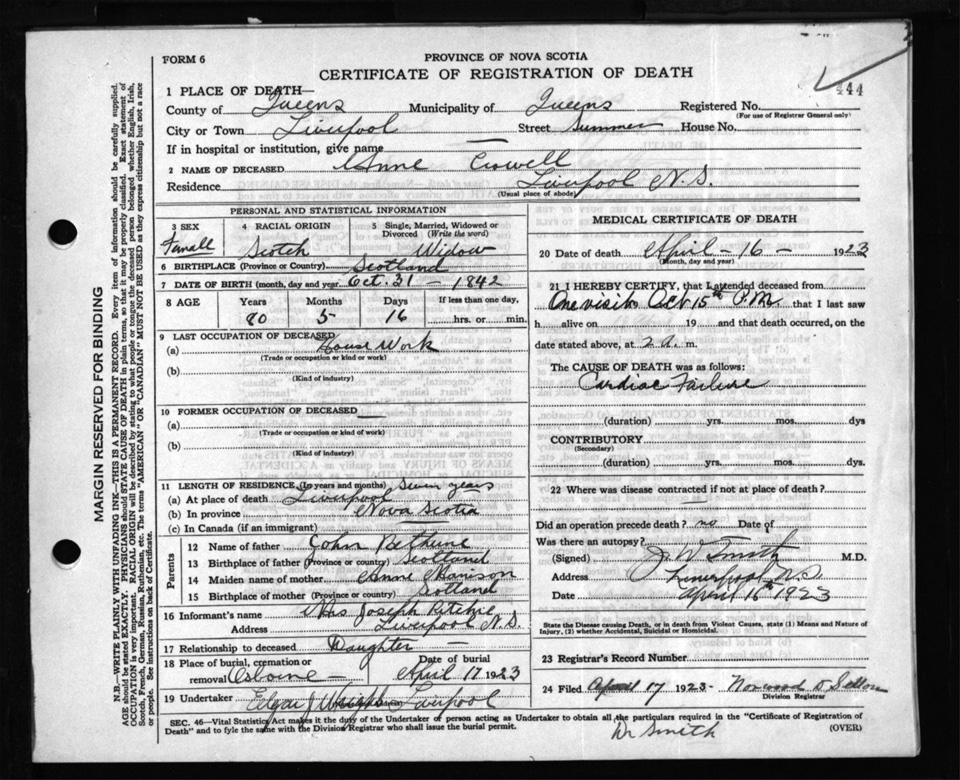 FORM 6
PROVINCE OF NOVA SCOTIA
CERTIFICATE OF REGISTRATION OF DEATH
444
1 PLACE OF DEATH—
County of Queens Municipality of Queens Registered No.
(For use of Registrar General only)
City or Town Liverpool Street Summer House No.
If in hospital or institution, give name —
2 NAME OF DECEASED Anne Crowell
Residence Liverpool N.S.
(Usual place of abode)
PERSONAL AND STATISTICAL INFORMATION
3 SEX 4 RACIAL ORIGIN 5 Single, Married, Widowed or Divorced (Write the word)
Femall Scotch Widow
6 BIRTHPLACE (Province or Country) Scotland
7 DATE OF BIRTH (month, day and year) Oct. 31 — 1842
8 AGE Years Months Days If less than one day,
80 5 16 hrs. or min.
9 LAST OCCUPATION OF DECEASED
(a) House Work
(Trade or occupation or kind of work)
(b)
(Kind of industry)
10 FORMER OCCUPATION OF DECEASED —
(a)
(Trade or occupation or kind of work)
(b)
(Kind of industry)
11 LENGTH OF RESIDENCE (In years and months) Seven years
(a) At place of death Liverpool
(b) In province Nova Scotia
(c) In Canada (if an immigrant) —
Parents
12 Name of father John Bethune
13 Birthplace of father (Province or country) Scotland
14 Maiden name of mother Anne
15 Birthplace of mother (Province or country) Scotland
16 Informant's name Mrs Joseph Ritchie
Address Liverpool N.S.
17 Relationship to deceased Daughter —
18 Place of burial, cremation or removal Date of burial
April 17 1923
19 Undertaker Edgar J Liverpool
MEDICAL CERTIFICATE OF DEATH
20 Date of death April — 16 — 1923
(Month, day and year)
21 I HEREBY CERTIFY, that I attended deceased from
One visit Oct 15th P.M. that I last saw
h alive on 19 and that death occurred, on
date stated above, at 2 a. m.
The CAUSE OF DEATH was as follows:
Cardiac Failure
(duration) yrs. mos. dys
CONTRIBUTORY
(Secondary)
(duration) yrs. mos. dys.
22 Where was disease contracted if not at place of death?
Did an operation precede death? no Date of
Was there an autopsy?
(Signed) J. W Smith M.D.
Address Liverpool, N.S
Date April 16th 1923
State the Disease causing Death, or in death from Violent Causes, state (1) Means and Nature of Injury, (2) whether Accidental, Suicidal or Homicidal.
23 Registrar's Record Number
24 Filed April 17 1923
Division Registrar
SEC. 46—Vital Statistics Act makes it the duty of the Undertaker or person acting as Undertaker to obtain all the particulars required in the "Certificate of Registration of
Death" and to fyle the same with the Division Registrar who shall issue the burial permit. (OVER)
Dr Smith
MARGIN RESERVED FOR BINDING
N.B.—WRITE PLAINLY WITH UNFADING INK—THIS IS A PERMANENT RECORD. Every item of information should be carefully supplied.
AGE should be stated EXACTLY. PHYSICIANS should STATE CAUSE OF DEATH in plain terms, so that it may be properly classified. Exact statement of
OCCUPATION is very important. RACIAL ORIGIN will be described by stating to what people or tongue the deceased person belonged whether English, Irish,
Scotch, French, German, Russian, Ruthenian, etc. The terms "AMERICAN" OR "CANADIAN" MUST NOT BE USED as they express citizenship but not a race
or people. See instructions on back of Certificate.